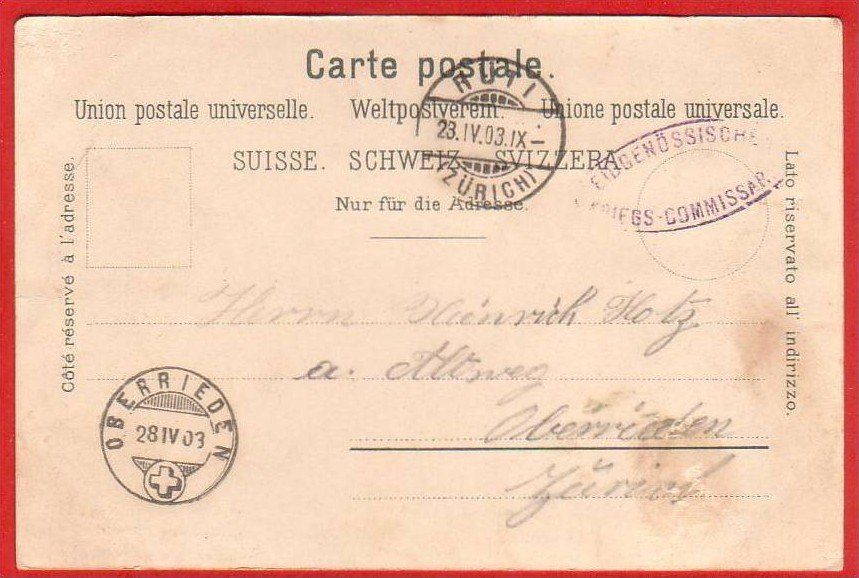 Carte postale.
Union postale universelle. Weltpostverein. Unione postale universale.
SUISSE. SCHWEIZ. SVIZZERA
Nur für die Adresse.
Côté réservé à l'adresse.
Lato riservato all' indirizzo.
RÜTI
23.IV.03.IX–
(ZÜRICH)
EIDGENÖSSISCHE
KRIEGS-COMMISSAR
Herrn Heinrich Hotz
a.
Oberrieden
Zürich
OBERRIEDEN
28 IV 03